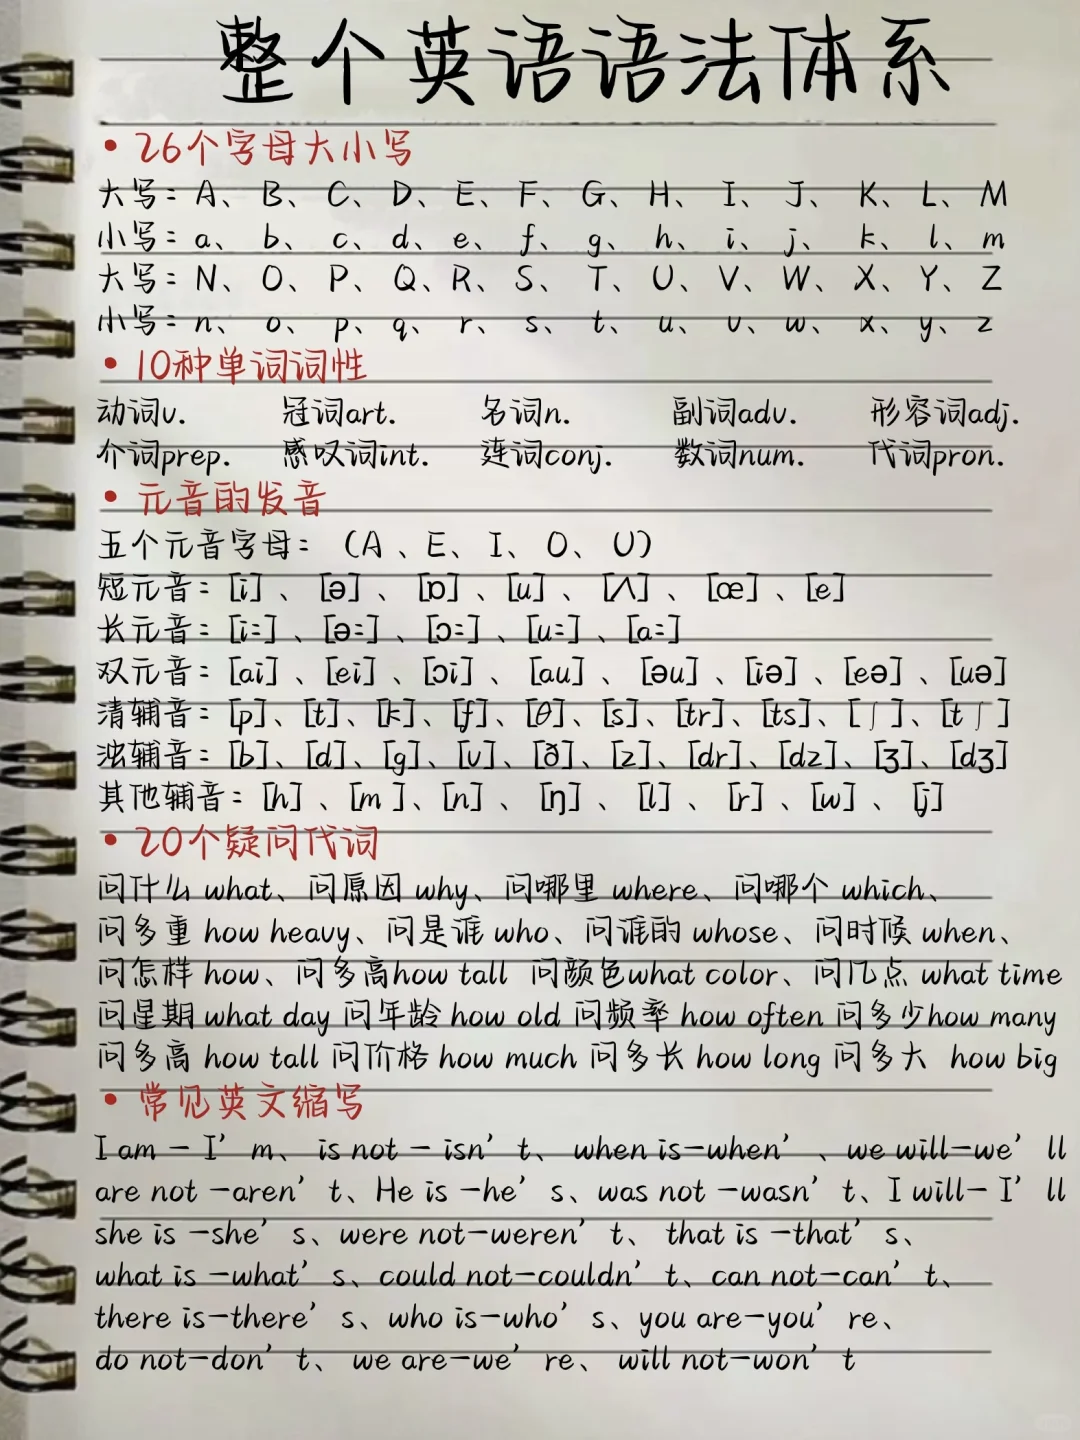 整个英语语法体系
• 26个字母大小写
大写: A、 B、 C、 D、 E、 F、 G、 H、 I、 J、 K、 L、 M
小写: a、 b、 c、 d、 e、 f、 g、 h、 i、 j、 k、 l、 m
大写: N、 O、 P、 Q、 R、 S、 T、 U、 V、 W、 X、 Y、 Z
小写: n、 o、 p、 q、 r、 s、 t、 u、 v、 w、 x、 y、 z
• 10种单词词性
动词v. 冠词art. 名词n. 副词adv. 形容词adj.
介词prep. 感叹词int. 连词conj. 数词num. 代词pron.
• 元音的发音
五个元音字母: (A 、E、 I、 O、 U)
短元音: [i] 、 [ə] 、 [ɒ] 、 [u] 、 [Λ] 、 [œ] 、[e]
长元音: [i:] 、[ə:] 、[ɔ:] 、[u:] 、[a:]
双元音: [ai] 、[ei] 、[ɔi] 、[au] 、[əu] 、[iə] 、[eə] 、[uə]
清辅音: [p]、[t]、[k]、[f]、[θ]、[s]、[tr]、[ts]、[ʃ]、[tʃ]
浊辅音: [b]、[d]、[g]、[v]、[ð]、[z]、[dr]、[dz]、[ʒ]、[dʒ]
其他辅音: [h] 、[m ]、[n] 、[ŋ] 、[l] 、[r] 、[w] 、[j]
• 20个疑问代词
问什么 what、问原因 why、问哪里 where、问哪个 which、
问多重 how heavy、问是谁 who、问谁的 whose、问时候 when、
问怎样 how、问多高how tall 问颜色what color、问几点 what time
问星期 what day 问年龄 how old 问频率 how often 问多少how many
问多高 how tall 问价格 how much 问多长 how long 问多大 how big
• 常见英文缩写
I am — I' m、 is not — isn' t、 when is—when' 、we will—we' ll
are not —aren' t、He is —he' s、was not —wasn' t、I will— I' ll
she is —she' s、were not—weren' t、 that is —that' s、
what is —what' s、could not—couldn' t、can not—can' t、
there is—there' s、who is—who' s、you are—you' re、
do not—don' t、 we are—we' re、 will not—won' t